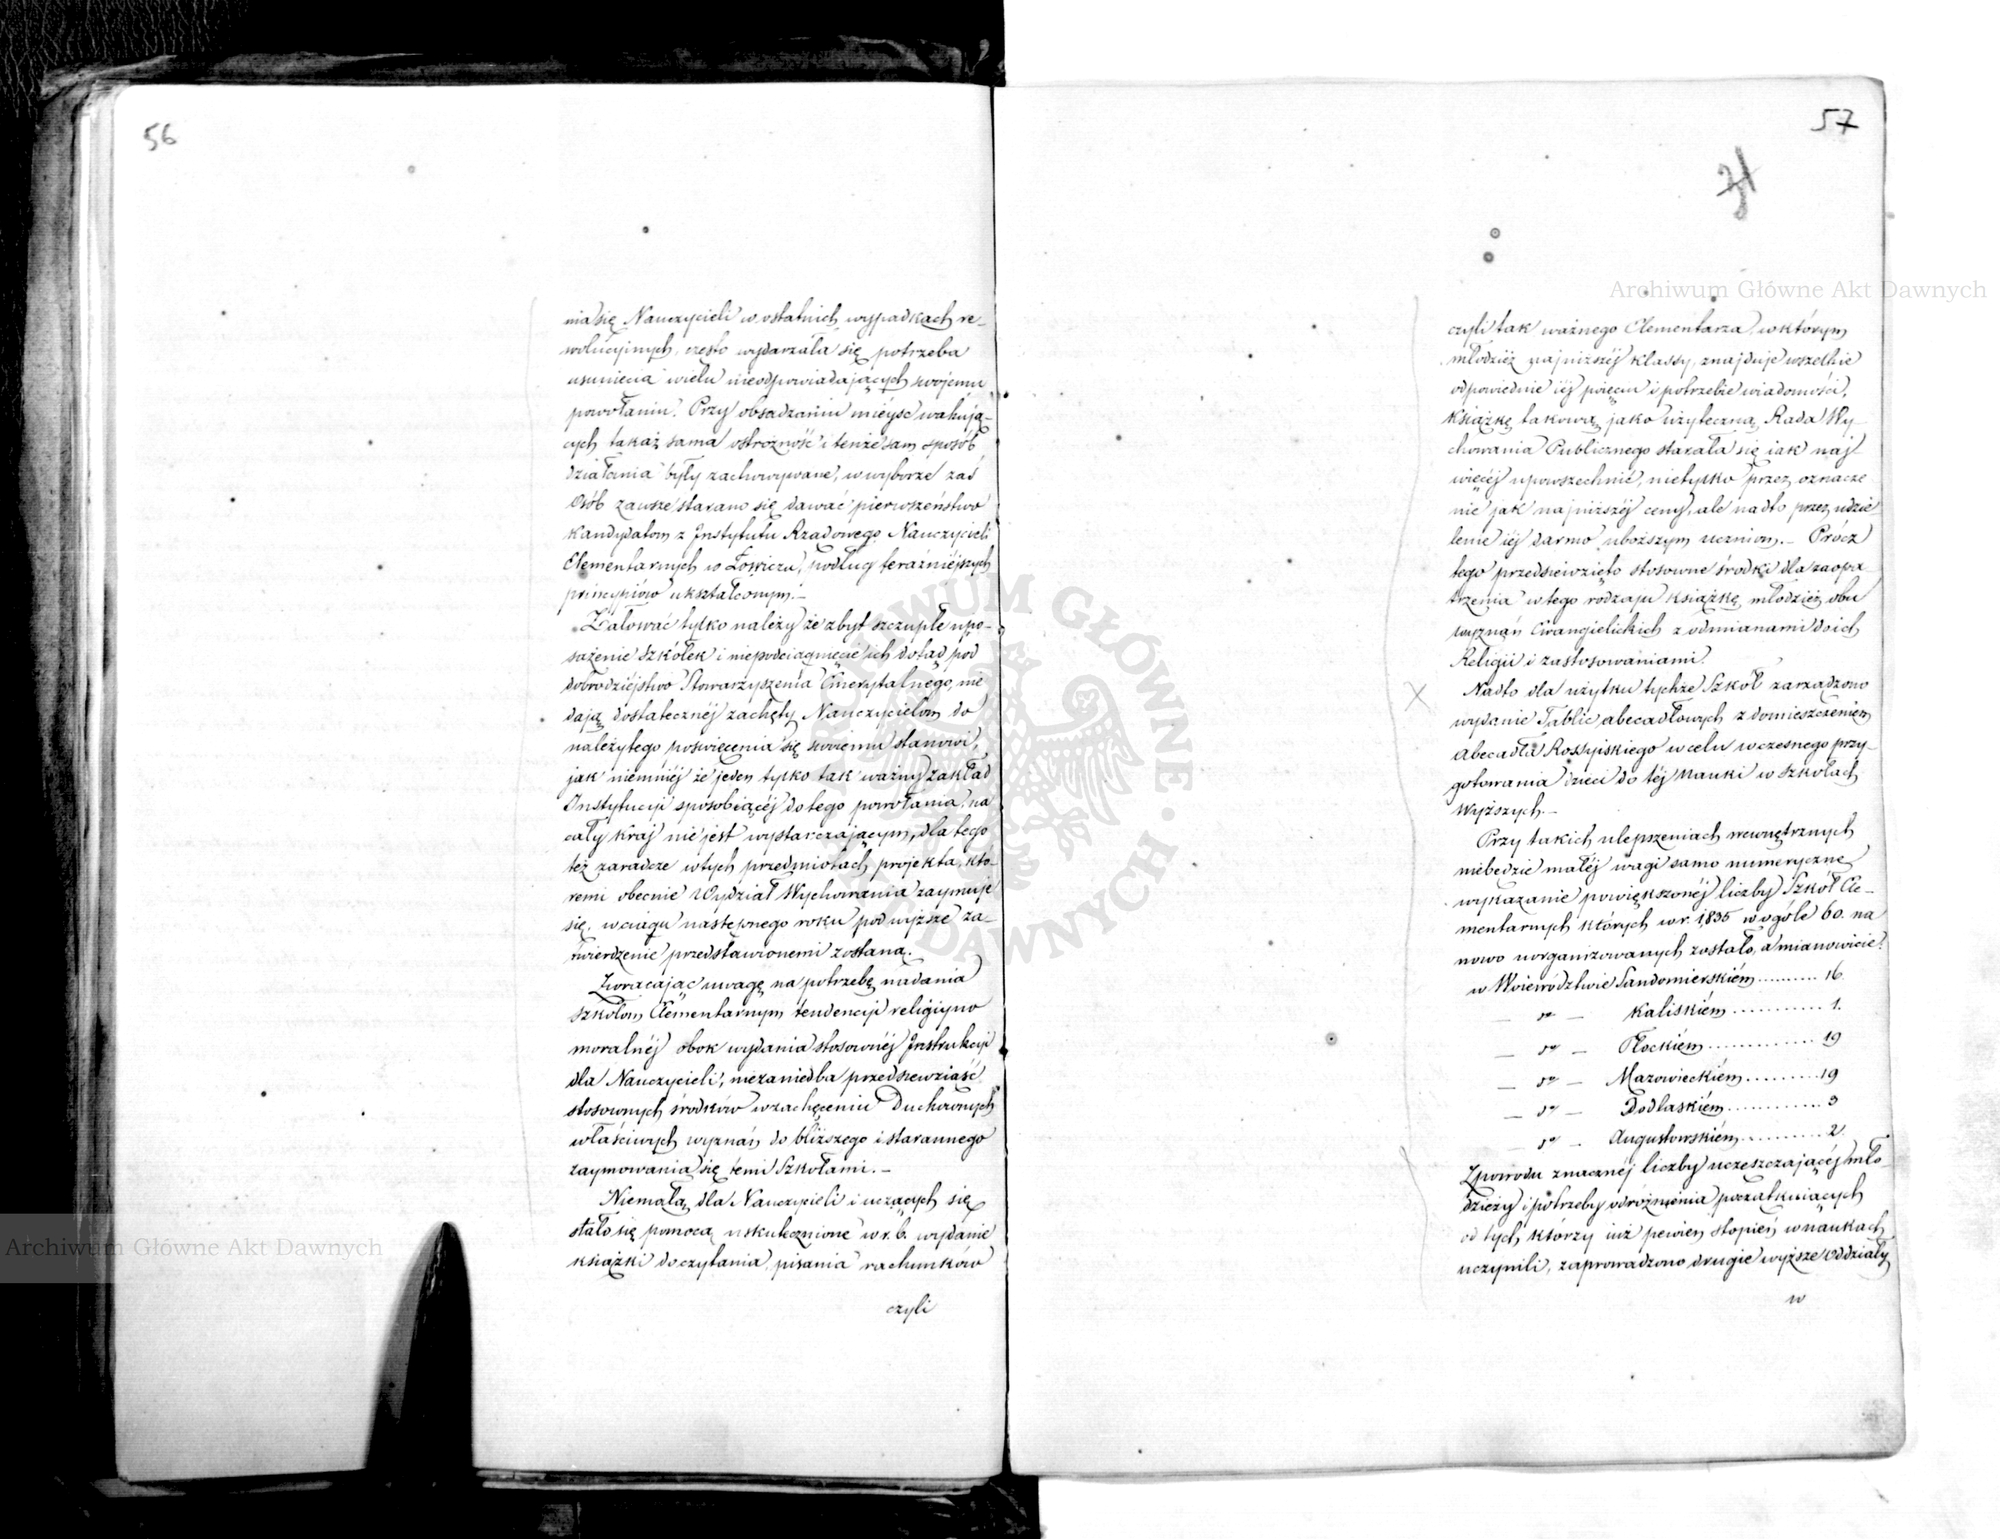 56
nia się Nauczycieli w ostatnich wypadkach re-
wolucyinych, często wydarzała się potrzeba
usunięcia wielu nieodpowiadających swojemu
powołaniu. Przy obsadzaniu mieysc wakują-
cych takaż sama ostrożność i tenże sam sposób
działania były zachowywane, w wyborze zaś
Osób zawsze starano się dawać pierwszeństwo
Kandydatom z Instytutu Rządowego Nauczycieli
Elementarnych w Łowiczu, podług teraźniejszych
princypiów ukształconym.—
Żałować tylko należy że zbyt szczupłe upo-
sażenie Szkółek i niepodciągnięcie ich dotąd pod
dobrodziejstwo Stowarzyszenia Emerytalnego, nie
dają dostatecznéj zachęty Nauczycielom do
należytego poświęcenia się swoiemu stanowi,
jak niemniéj że jeden tylko tak ważny zakład
Instytucyi sposobiącéj do tego powołania, na
cały kraj nie jest wystarczającym, dla tego
też zaradcze w tych przedmiotach projekta, któ-
remi obecnie Wydział Wychowania zaymuje
się, w ciągu następnego roku pod wyższe za-
twierdzenie przedstawionemi zostaną.
Zwracając uwagę na potrzebę nadania
szkołom Elementarnym tendencyi religijno
moralnéj obok wydania stosownéj Instrukcyi
dla Nauczycieli, niezaniedba przedsiewziąść
stosownych środków w zachęceniu Duchownych
właściwych wyznań do bliższego i starannego
zaymowania się temi Szkołami.—
Niemałą dla Nauczycieli i uczących się
stało się pomocą uskutecznione w r. b. wydanie
książki do czytania, pisania rachunków
czyli
57
czyli tak ważnego Elementarza, w którym
młodzież najniższéj klassy, znajduje wszelkie
odpowiednie iéj poięciu i potrzebie wiadomości,
Książkę takową jako użyteczną Rada Wy-
chowania Publicznego starała się iak naj
więcéj upowszechnić, nietylko przez oznacze
nie jak najniższéj ceny, ale nadto przez udzie-
lenie iéj darmo uboższym uczniom.— Prócz
tego przedsiewzięto stosowne środki dla zaopa
trzenia w tego rodzaju książkę młodzież obu
wyznań Ewangielickich z odmianami do ich
Religii i zastosowaniami.
Nadto dla użytku tychże Szkół zarządzono
wydanie Tablic abecadłowych z domieszczeniem
Abecadła Rossyiskiego w celu wczesnego przy-
gotowania dzieci do téj Nauki w szkołach
Wyższych.—
Przy takich ulepszeniach wewnętrznych
niebędzie małéj wagi samo numeryczne
wykazanie powiększonéj liczby Szkół Ele-
mentarnych których w r. 1835 w ogóle 60. na
nowo uorganizowanych zostało, a mianowicie:
w Woiewództwie Sandomierskiém .......... 16.
— do — Kaliskiém ............ 1.
— do — Płockiém .............. 19
— do — Mazowieckiém ......... 19
— do — Podlaskiém ............ 3
do — Augustowskiém .......... 2.
Z powodu znacznéj liczby uczeszczającéj mło-
dzieży i potrzeby odróżnienia początkuiących
od tych, którzy iuż pewien stopień w naukach
uczynili, zaprowadzono drugie wyższe Oddziały
w
Archiwum Główne Akt Dawnych
Archiwum Główne Akt Dawnych
ARCHIWUM GŁÓWNE AKT DAWNYCH